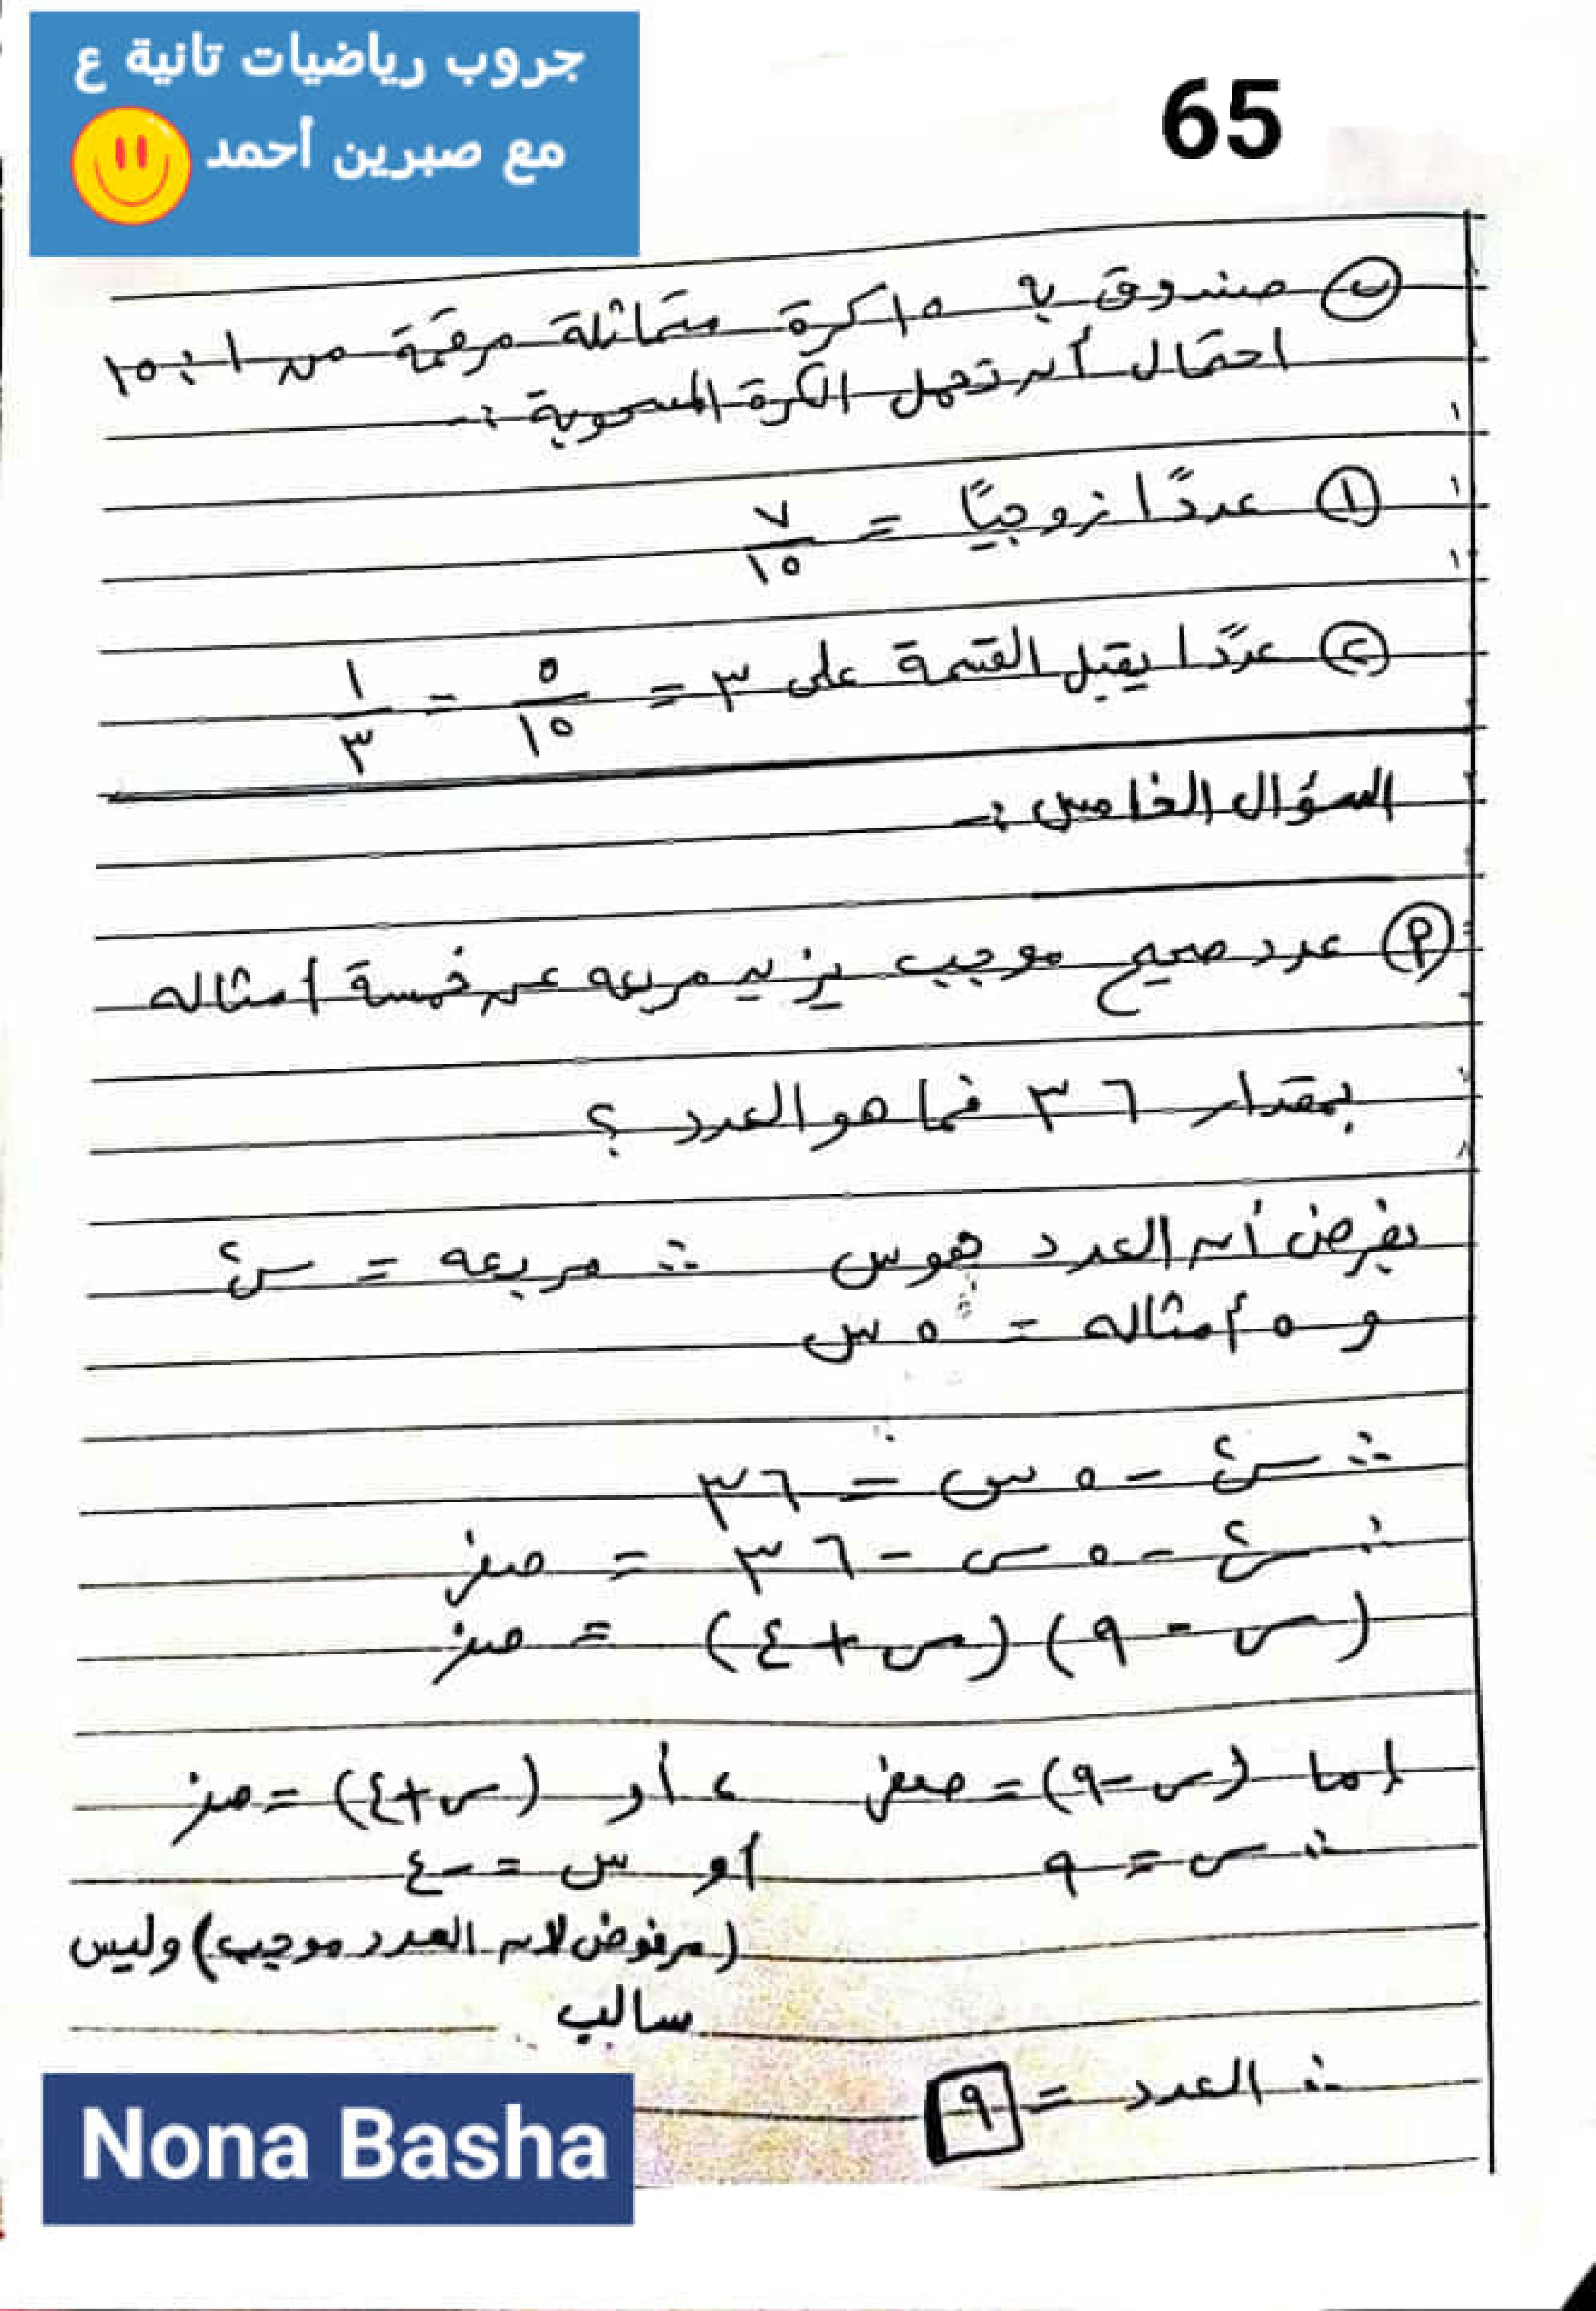 جروب رياضيات تانية ع
مع صبرين أحمد
65
ب صندوق به ١٥ كرة متماثلة مرقمة من ١ : ١٥
احتمال أن تحمل الكرة المسحوبة :-
١ عددًا زوجيًا = ٧/١٥
٢ عددًا يقبل القسمة على ٣ = ٥/١٥ = ١/٣
السؤال الخامس :-
٩ عدد صحيح موجب يزيد مربعه عن خمسة أمثاله
بمقدار ٣٦ فما هو العدد ؟
بفرض أن العدد هو س ∴ مربعه = س٢
و ٥ أمثاله = ٥ س
∴ س٢ - ٥ س = ٣٦
∴ س٢ - ٥ س - ٣٦ = صفر
(س - ٩) (س + ٤) = صفر
إما (س - ٩) = صفر ، أو (س + ٤) = صفر
∴ س = ٩ أو س = -٤
(مرفوض لان العدد موجب) وليس
سالب
∴ العدد = ٩
Nona Basha